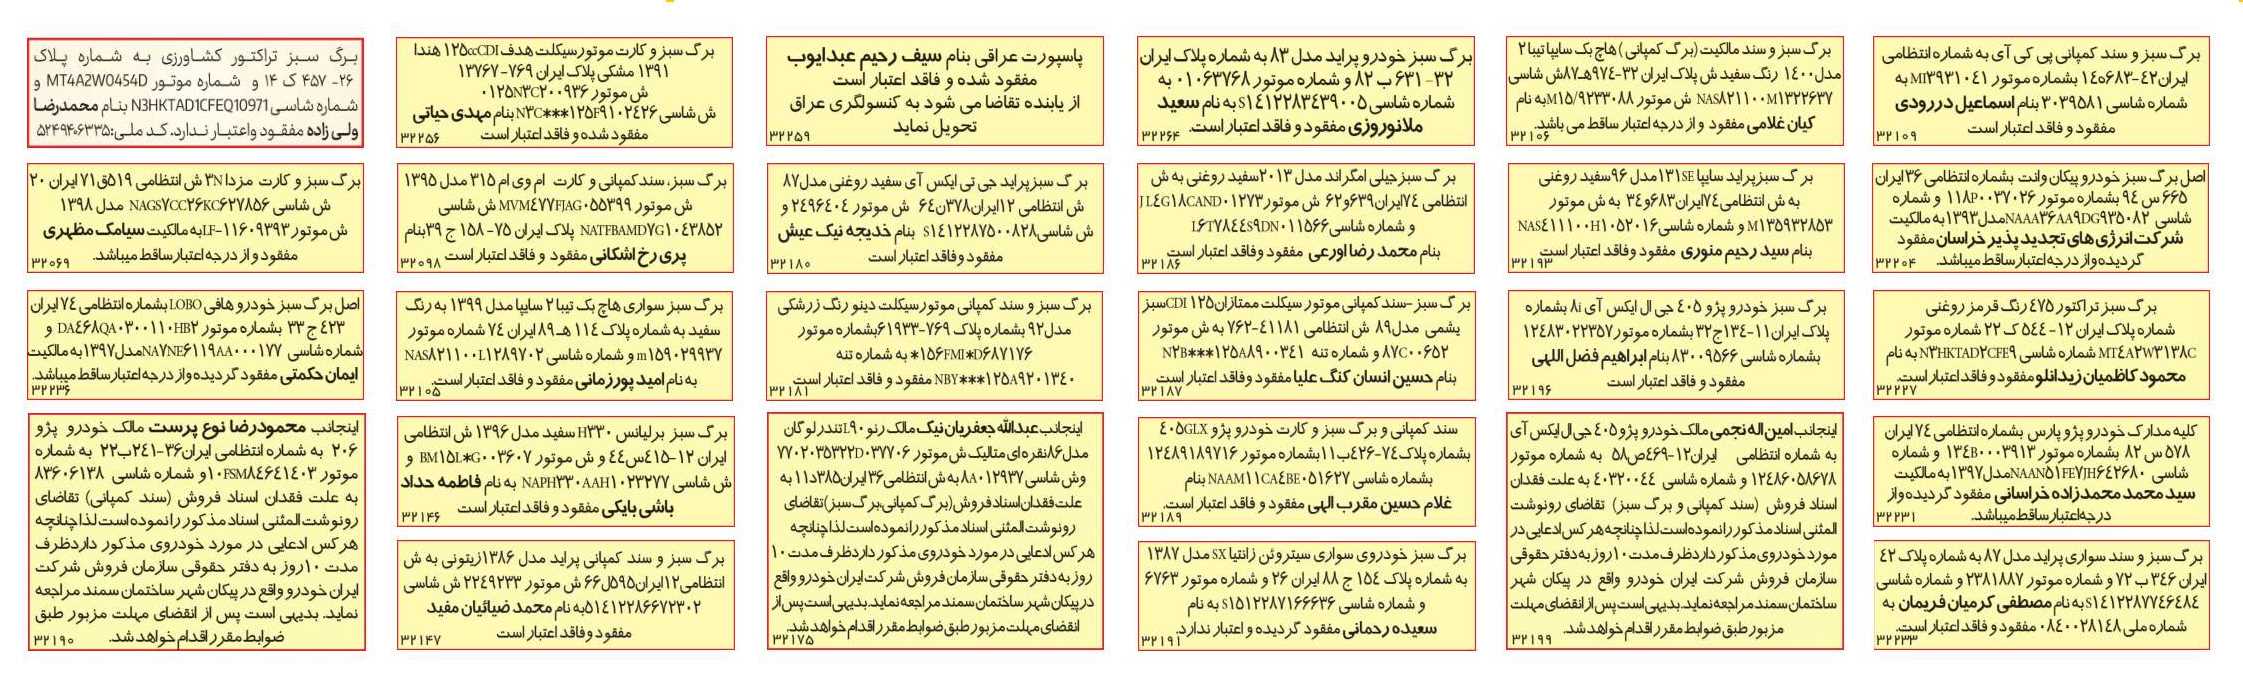 برگ سبز و سند کمپانی پی کی آی به شماره انتظامی
ایران۴۲-۶۸۳ه۱۴ بشماره موتور MI۳۹۳۱۰۴۱ به
شماره شاسی ۳۰۳۹۵۸۱ بنام اسماعیل دررودی
مفقود و فاقد اعتبار است
۳۲۱۰۹
اصل برگ سبز خودرو پیکان وانت بشماره انتظامی ۳۶ایران
۶۶۵ س ۹۴ بشماره موتور ۱۱۸P۰۰۳۷۰۲۶ و شماره
شاسی NAAA۳۶AA۹DG۹۳۵۰۸۲مدل۱۳۹۳به مالکیت
شرکت انرژی های تجدید پذیر خراسان مفقود
گردیده واز درجه اعتبار ساقط میباشد.
۳۲۲۰۴
برگ سبز تراکتور ۴۷۵ رنگ قرمز روغنی
شماره پلاک ایران ۱۲-۵۴۴ ک ۲۲ شماره موتور
MT۴A۲W۳۱۳۸C شماره شاسی N۳HKTAD۲CFE۹ به نام
محمود کاظمیان زیدانلو مفقود و فاقد اعتبار است.
۳۲۲۲۷
کلیه مدارک خودرو پژو پارس بشماره انتظامی ۷۴ ایران
۵۷۸ س ۸۲ بشماره موتور ۱۳۴B۰۰۰۳۹۱۳ و شماره
شاسی NAAN۵۱FE۷JH۶۴۲۶۸۰مدل۱۳۹۷به مالکیت
سید محمد محمدزاده خراسانی مفقود گردیده واز
درجه اعتبار ساقط میباشد.
۳۲۲۳۱
برگ سبز و سند سواری پراید مدل ۸۷ به شماره پلاک ۴۲
ایران ۳۴۶ ب ۷۲ و شماره موتور ۲۳۸۱۸۸۷ و شماره شاسی
S۱۴۱۲۲۸۷۷۴۶۴۸۴ به نام مصطفی کرمیان فریمان به
شماره ملی ۰۸۴۰۰۲۸۱۴۸ مفقود و فاقد اعتبار است.
۳۲۲۳۳
برگ سبز و سند مالکیت (برگ کمپانی ) هاچ بک سایپا تیبا ۲
مدل ۱۴۰۰ رنگ سفید ش پلاک ایران ۳۲-۹۷۴هـ۸۷ش شاسی
NAS۸۲۱۱۰۰M۱۳۲۲۶۳۷ ش موتور M۱۵/۹۲۳۳۰۸۸به نام
کیان غلامی مفقود و از درجه اعتبار ساقط می باشد.
۳۲۱۰۶
برگ سبزپراید سایپا ۱۳۱SEمدل ۹۶سفید روغنی
به ش انتظامی۷۴ایران۶۸۳و۳۴ به ش موتور
M۱۳۵۹۳۲۸۵۳ و شماره شاسی NAS۴۱۱۱۰۰H۱۰۵۲۰۱۶
بنام سید رحیم منوری مفقود وفاقد اعتبار است
۳۲۱۹۳
برگ سبز خودرو پژو ۴۰۵ جی ال ایکس آی ۸i بشماره
پلاک ایران۱۱-۱۳۴ج۳۲ بشماره موتور۱۲۴۸۳۰۲۲۳۵۷
بشماره شاسی ۸۳۰۰۹۵۶۶ بنام ابراهیم فضل اللهی
مفقود و فاقد اعتبار است
۳۲۱۹۶
اینجانب امین اله نجمی مالک خودرو پژو ۴۰۵ جی ال ایکس آی
به شماره انتظامی ایران۱۲-۴۶۹ص۵۸ به شماره موتور
۱۲۴۸۶۰۵۸۶۷۸ و شماره شاسی ۴۰۳۲۰۰۴۴ به علت فقدان
اسناد فروش (سند کمپانی و برگ سبز) تقاضای رونوشت
المثنی اسناد مذکور رانموده است لذا چنانچه هر کس ادعایی در
مورد خودروی مذکور دارد ظرف مدت ۱۰روز به دفتر حقوقی
سازمان فروش شرکت ایران خودرو واقع در پیکان شهر
ساختمان سمند مراجعه نماید. بدیهی است پس از انقضای مهلت
مزبور طبق ضوابط مقرر اقدام خواهد شد.
۳۲۱۹۹
برگ سبز خودرو پراید مدل ۸۳ به شماره پلاک ایران
۳۲- ۶۳۱ ب ۸۲ و شماره موتور ۰۱۰۶۳۷۶۸ به
شماره شاسی S۱۴۱۲۲۸۳۴۳۹۰۰۵ به نام سعید
ملانوروزی مفقود و فاقد اعتبار است.
۳۲۲۶۴
برگ سبز جیلی امگراند مدل ۲۰۱۳سفید روغنی به ش
انتظامی ۷۴ایران۶۳۹و۶۲ ش موتور JL۴G۱۸CAND۰۱۲۷۳
و شماره شاسی L۶T۷۸۴۴S۹DN۰۱۱۵۶۶
بنام محمد رضا اورعی مفقود وفاقد اعتبار است
۳۲۱۸۶
برگ سبز -سند کمپانی موتور سیکلت ممتازان۱۲۵ CDIسبز
یشمی مدل۸۹ ش انتظامی ۴۱۱۸۱-۷۶۲ به ش موتور
۸۷C۰۰۶۵۲ و شماره تنه N۲B***۱۲۵A۸۹۰۰۳۴۱
بنام حسین انسان کنگ علیا مفقود وفاقد اعتبار است
۳۲۱۸۷
سند کمپانی و برگ سبز و کارت خودرو پژو ۴۰۵GLX
بشماره پلاک ۷۴-۴۲۶ب۱۱بشماره موتور ۱۲۴۸۹۱۸۹۷۱۶
بشماره شاسی NAAM۱۱CA۴BE۰۵۱۶۲۷ بنام
غلام حسین مقرب الهی مفقود و فاقد اعتبار است.
۳۲۱۸۹
برگ سبز خودروی سواری سیتروئن زانتیا SX مدل ۱۳۸۷
به شماره پلاک ۱۵۴ ج ۸۸ ایران ۲۶ و شماره موتور ۶۷۶۳
و شماره شاسی S۱۵۱۲۲۸۷۱۶۶۶۳۶ به نام
سعیده رحمانی مفقود گردیده و اعتبار ندارد.
۳۲۱۹۱
پاسپورت عراقی بنام سیف رحیم عبدایوب
مفقود شده و فاقد اعتبار است
از یابنده تقاضا می شود به کنسولگری عراق
تحویل نماید
۳۲۲۵۹
برگ سبزپراید جی تی ایکس آی سفید روغنی مدل۸۷
ش انتظامی ۱۲ایران۳۷۸ن۶۴ ش موتور ۲۴۹۶۴۰۴ و
ش شاسی S۱۴۱۲۲۸۷۵۰۰۸۲۸ بنام خدیجه نیک عیش
مفقود وفاقد اعتبار است
۳۲۱۸۰
برگ سبز و سند کمپانی موتورسیکلت دینو رنگ زرشکی
مدل۹۲ بشماره پلاک ۷۶۹-۶۱۹۳۳بشماره موتور
۱۵۶FMI*D۶۸۷۱۷۶* به شماره تنه
NBY***۱۲۵A۹۲۰۱۳۴۰ مفقود و فاقد اعتبار است
۳۲۱۸۱
اینجانب عبدالله جعفریان نیک مالک رنو L۹۰تندر لوگان
مدل۸۶نقره ای متالیک ش موتور ۷۷۰۲۰۳۵۳۲۲D۰۳۷۷۰۶
وش شاسی ۸A۰۱۲۹۳۷ به ش انتظامی۳۶ایران۳۸۵د۱۱ به
علت فقدان اسناد فروش(برگ کمپانی،برگ سبز)تقاضای
رونوشت المثنی اسناد مذکور رانموده است لذا چنانچه
هرکس ادعایی در مورد خودروی مذکور دارد ظرف مدت ۱۰
روز به دفتر حقوقی سازمان فروش شرکت ایران خودرو واقع
در پیکان شهر ساختمان سمند مراجعه نماید.بدیهی است پس از
انقضای مهلت مزبور طبق ضوابط مقرر اقدام خواهد شد.
۳۲۱۷۵
برگ سبز و کارت موتور سیکلت هدف ۱۲۵ccCDI هندا
۱۳۹۱ مشکی پلاک ایران ۷۶۹- ۱۳۷۶۷
ش موتور ۰۱۲۵N۳C۲۰۰۹۳۶
ش شاسی N۳C***۱۲۵F۹۱۰۲۴۲۶ بنام مهدی حیاتی
مفقود شده و فاقد اعتبار است
۳۲۲۵۶
برگ سبز، سند کمپانی و کارت ام وی ام ۳۱۵ مدل ۱۳۹۵
ش موتور MVM۴۷۷FJAG۰۵۵۳۹۹ ش شاسی
NATFBAMD۷G۱۰۴۳۸۵۲ پلاک ایران ۷۵- ۱۵۸ ج ۳۹بنام
پری رخ اشکانی مفقود و فاقد اعتبار است
۳۲۰۹۸
برگ سبز سواری هاچ بک تیبا ۲ سایپا مدل ۱۳۹۹ به رنگ
سفید به شماره پلاک ۱۱۴ هـ ۸۹ ایران ۷۴ شماره موتور
m۱۵۹۰۲۹۹۳۷ و شماره شاسی NAS۸۲۱۱۰۰L۱۲۸۹۷۰۲
به نام امید پورزمانی مفقود و فاقد اعتبار است.
۳۲۱۰۵
برگ سبز برلیانس H۳۳۰ سفید مدل ۱۳۹۶ ش انتظامی
ایران ۱۲-۴۱۵س۴۴ و ش موتور BM۱۵L*G۰۰۳۶۰۷ و
ش شاسی NAPH۳۳۰AAH۱۰۲۳۲۷۷ به نام فاطمه حداد
باشی بایکی مفقود و فاقد اعتبار است
۳۲۱۴۶
برگ سبز و سند کمپانی پراید مدل ۱۳۸۶زیتونی به ش
انتظامی۱۲ایران۵۹۵ل۶۶ ش موتور ۲۲۴۹۲۳۳ ش شاسی
S۱۴۱۲۲۸۶۶۷۲۳۰۲به نام محمد ضیائیان مفید
مفقود وفاقد اعتبار است
۳۲۱۴۷
برگ سبز تراکتور کشاورزی به شماره پلاک
۲۶- ۴۵۷ ک ۱۴ و شماره موتور MT4A2W0454D و
شماره شاسی N3HKTAD1CFEQ10971 بنام محمدرضا
ولی زاده مفقود واعتبار ندارد. کد ملی:۵۲۴۹۴۰۶۳۳۵
برگ سبز و کارت مزدا ۳N ش انتظامی ۵۱۹ق۷۱ ایران ۲۰
ش شاسی NAGS۷CC۲۶KC۶۲۷۸۵۶ مدل ۱۳۹۸
ش موتور LF-۱۱۶۰۹۳۹۳به مالکیت سیامک مظهری
مفقود و از درجه اعتبار ساقط میباشد.
۳۲۰۶۹
اصل برگ سبز خودرو هافی LOBO بشماره انتظامی ۷۴ ایران
۴۲۳ ج ۳۳ بشماره موتور DA۴۶۸QA۰۳۰۰۱۱۰HB۲ و
شماره شاسی NA۷NE۶۱۱۹AA۰۰۰۱۷۷مدل۱۳۹۷به مالکیت
ایمان حکمتی مفقود گردیده واز درجه اعتبار ساقط میباشد.
۳۲۲۳۶
اینجانب محمودرضا نوع پرست مالک خودرو پژو
۲۰۶ به شماره انتظامی ایران۳۶-۲۴۱ب۲۲ به شماره
موتور ۱۰FSM۸۴۶۴۱۴۰۳و شماره شاسی ۸۳۶۰۶۱۳۸
به علت فقدان اسناد فروش (سند کمپانی) تقاضای
رونوشت المثنی اسناد مذکور رانموده است لذا چنانچه
هر کس ادعایی در مورد خودروی مذکور داردظرف
مدت ۱۰روز به دفتر حقوقی سازمان فروش شرکت
ایران خودرو واقع در پیکان شهر ساختمان سمند مراجعه
نماید. بدیهی است پس از انقضای مهلت مزبور طبق
ضوابط مقرر اقدام خواهد شد.
۳۲۱۹۰